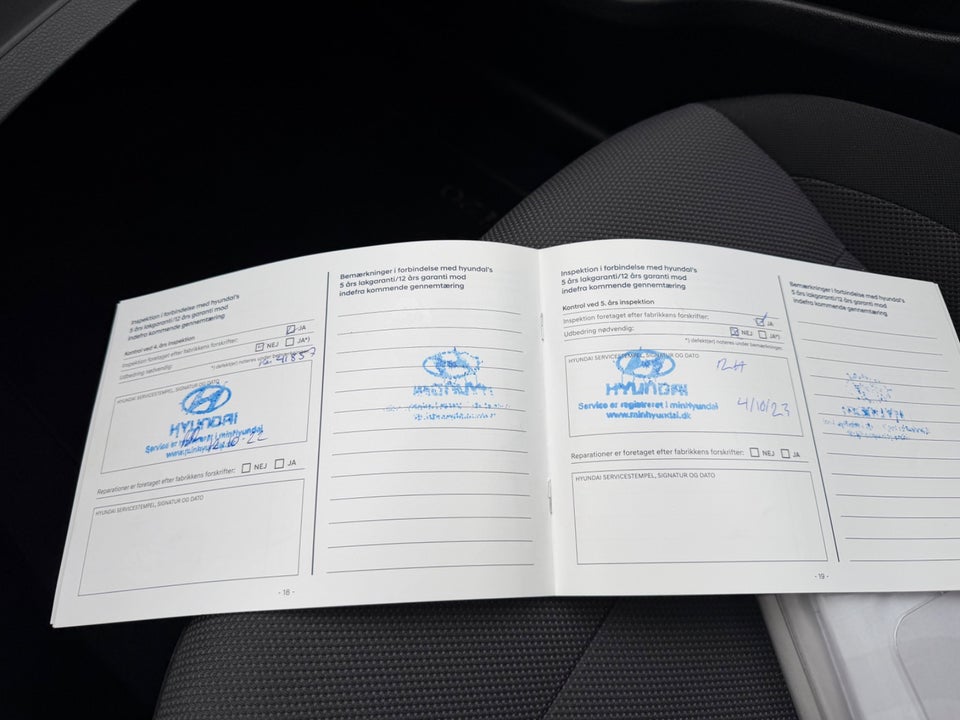 Inspektion i forbindelse med hyundai's
5 års lakgaranti/12 års garanti mod
indefra kommende gennemtæring
Kontrol ved 4. års inspektion
Inspektion foretaget efter fabrikkens forskrifter: JA
Udbedring nødvendig: NEJ JA*)
*) defekt(er) noteres under
HYUNDAI SERVICESTEMPEL, SIGNATUR OG DATO
HYUNDAI
Service er registreret i minHyundai
www.minhyundai.dk
Reparationer er foretaget efter fabrikkens forskrifter: NEJ JA
HYUNDAI SERVICESTEMPEL, SIGNATUR OG DATO
- 18 -
Bemærkninger i forbindelse med hyundai's
5 års lakgaranti/12 års garanti mod
indefra kommende gennemtæring
Inspektion i forbindelse med hyundai's
5 års lakgaranti/12 års garanti mod
indefra kommende gennemtæring
Kontrol ved 5. års inspektion
Inspektion foretaget efter fabrikkens forskrifter: JA
Udbedring nødvendig: NEJ JA*)
*) defekt(er) noteres under bemærkninger.
HYUNDAI SERVICESTEMPEL, SIGNATUR OG DATO
HYUNDAI
Service er registreret i minHyundai
www.minhyundai.dk
4/10/23
Reparationer er foretaget efter fabrikkens forskrifter: NEJ JA
HYUNDAI SERVICESTEMPEL, SIGNATUR OG DATO
- 19 -
Bemærkninger i forbindelse med hyundai's
5 års lakgaranti/12 års garanti mod
indefra kommende gennemtæring